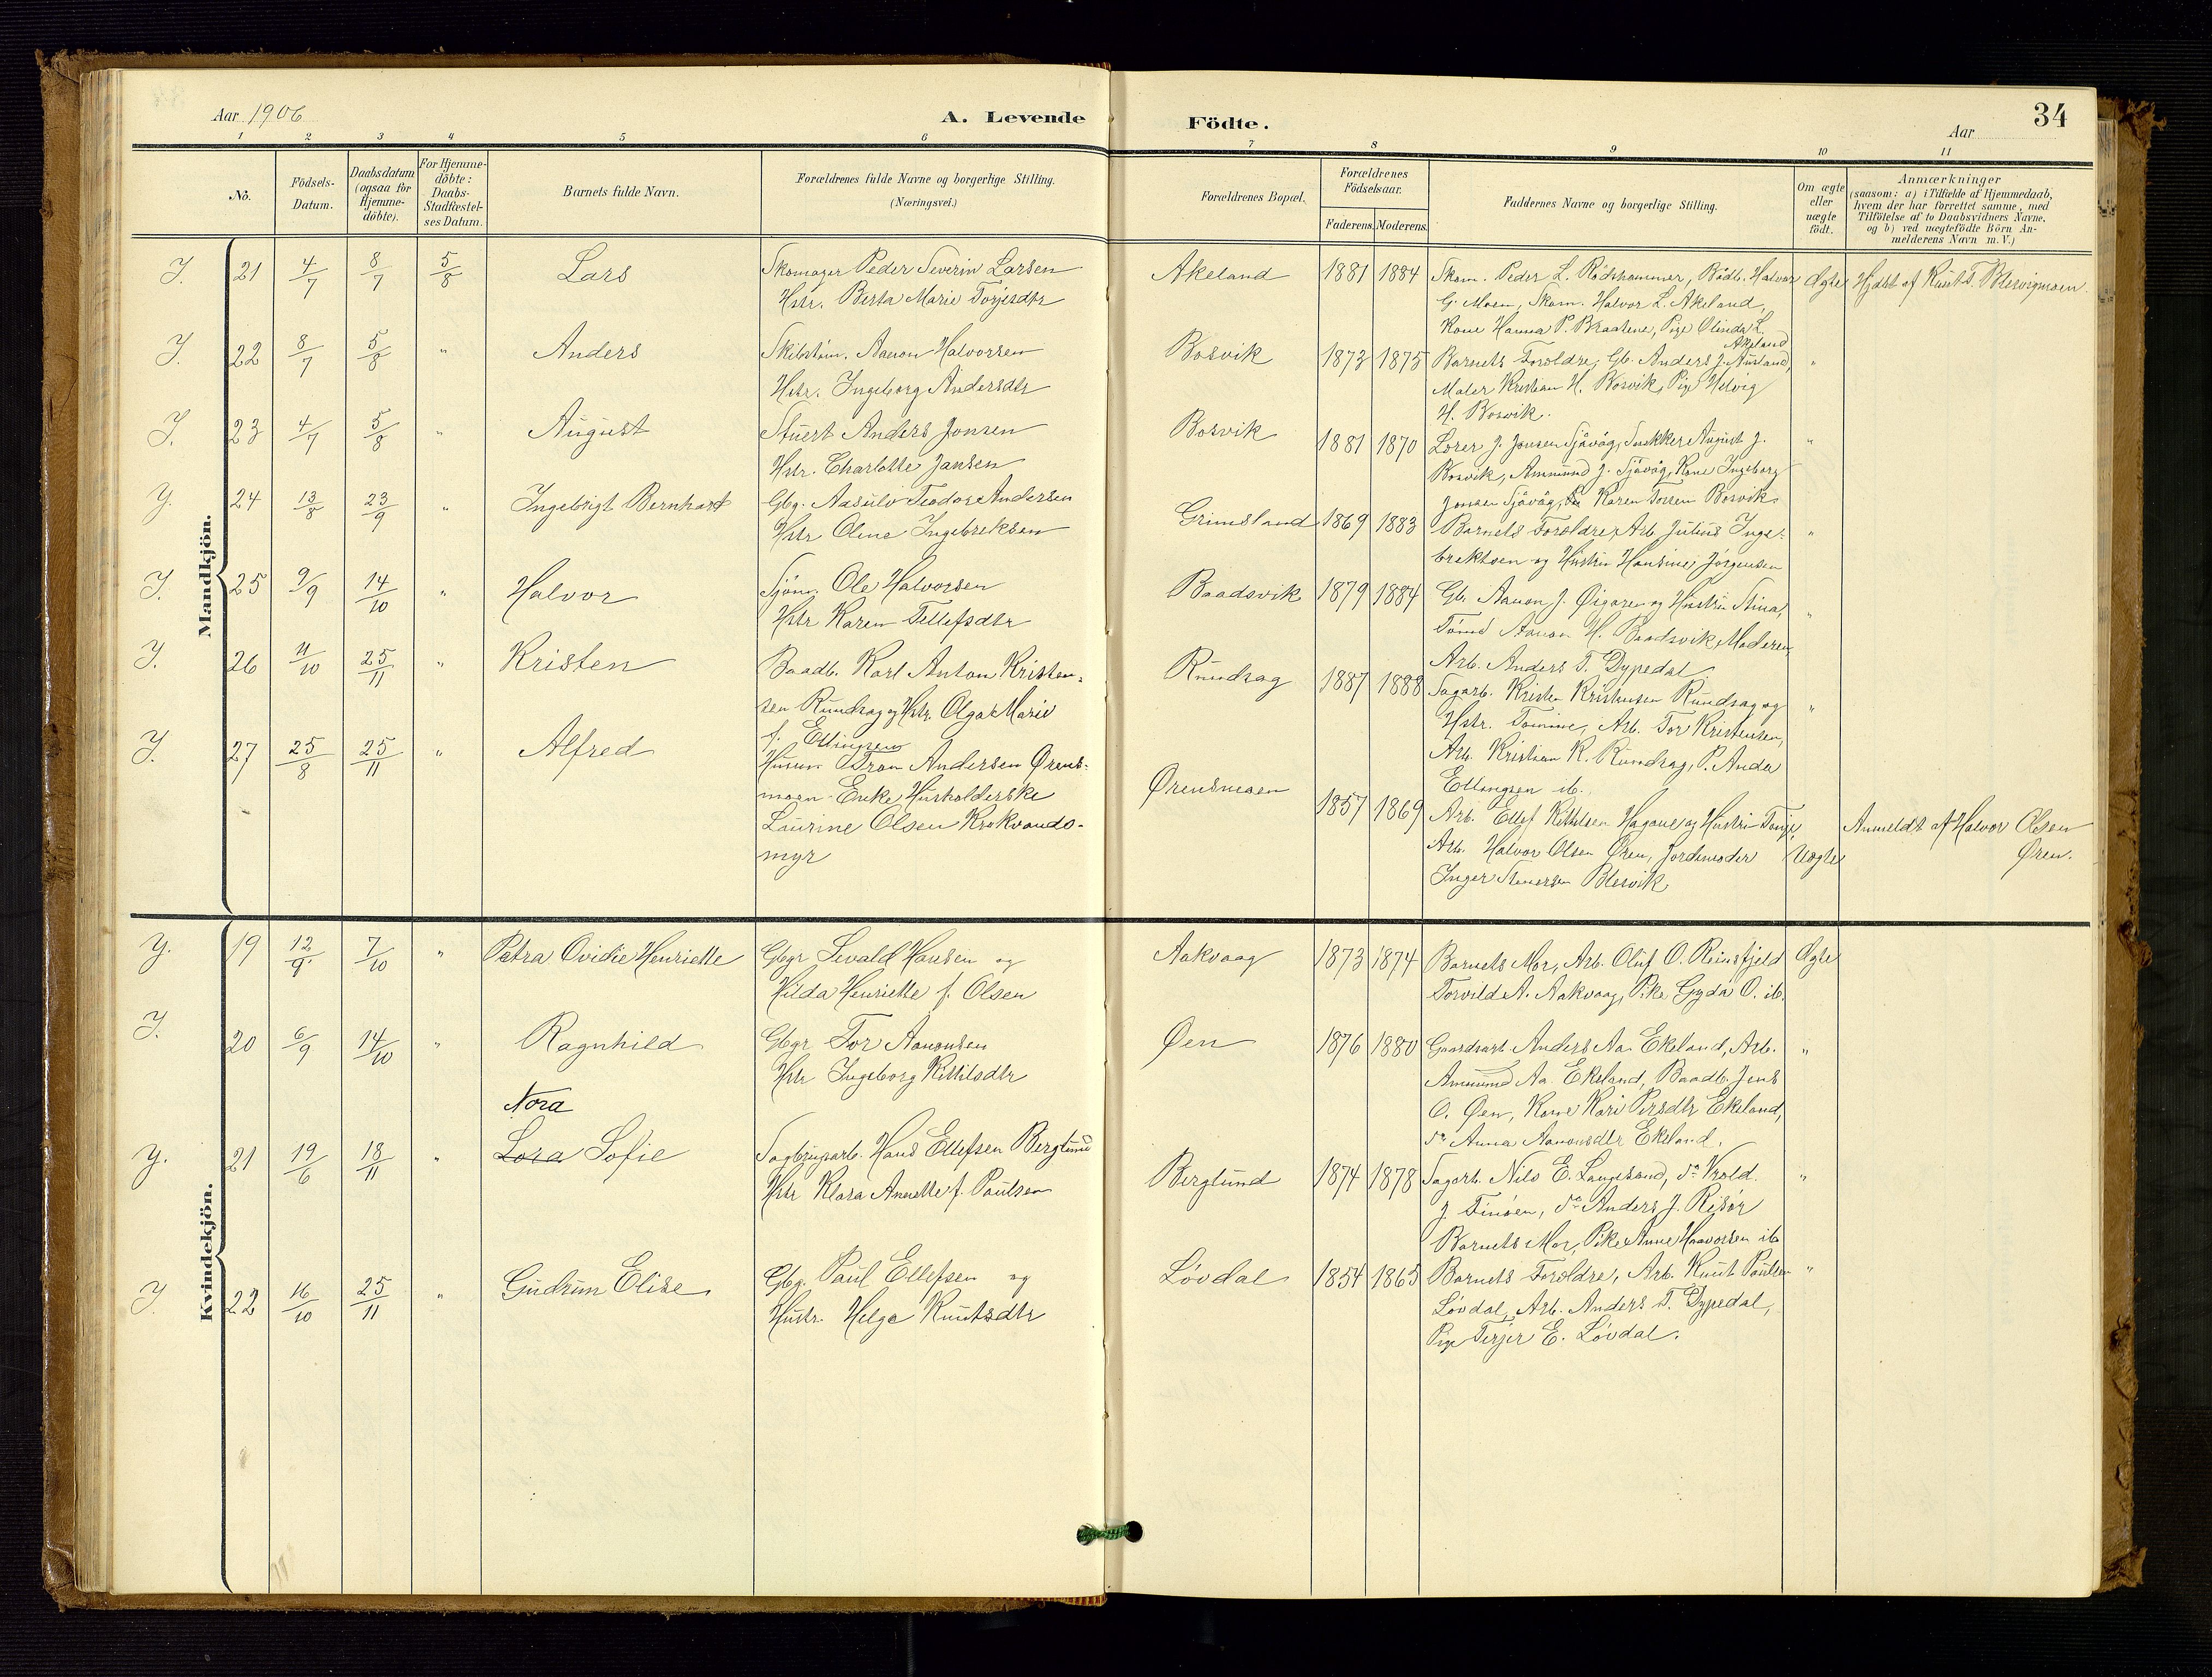 Aar 1906
A. Levende Födte.
Aar
34
1 2 3 4 5 6 7 8 9 10 11
No.
Födsels-Datum.
Daabsdatum (ogsaa for Hjemme-döbte).
For Hjemme-döbte: Daabs-Stadfæstel-ses Datum.
Barnets fulde Navn.
Forældrenes fulde Navne og borgerlige Stilling.
(Næringsvei.)
Forældrenes Bopæl.
Forældrenes Födselsaar.
Faderens. Moderens.
Faddernes Navne og borgerlige Stilling.
Om ægte eller uægte födt.
Anmærkninger
(saasom: a) i Tilfælde af Hjemmedaab,
hvem der har forrettet samme, med
Tilföielse af to Daabsvidners Navne,
og b) ved uægtefödte Börn An-
melderens Navn m. V.)
Mandkjön.
J. 21 4/7 8/7 5/8 Lars
Skomager Peder Severin Larsen
Hstr. Berta Marie Torjesdtr
Akeland 1881 1884
Skom. Peder L. Rødshammer, Bødk. Halvor
G. Moen, Skom. Halvor L. Akeland,
Kone Hanna P. Braatene, Pige Olinda L.
Akeland
Ægte
Hjdbt af Knut T. Blesvigmoen.
J. 22 8/7 5/8 " Anders
Skibstøm. Aanon Halvorsen
Hstr. Ingeborg Andersdtr
Bosvik 1873 1875
Barnets Foreldre, Gb. Anders J. Ausland,
Maler Kristian H. Bosvik, Pige Helvig
H. Bosvik.
"
J. 23 4/7 5/8 " August
Stuert Anders Jonsen
Hstr. Charlotte Jansen
Bosvik 1881 1870
J. Jonsen Sjåvåg, Snekker August J.
Bosvik, Ammund J. Sjåvåg, Kone Ingeborg
Jonsen Sjåvåg, Karen Bosvik
"
Y. 24 13/8 23/9 " Ingebrigt Bernhart
Gbg. Aasulv Teodor Andersen
Hstr Oline Ingebreksen
Grimsland 1869 1883
Barnets Foreldre, Arb. Julius Inge-
brektsen og Hustru Hansine, Jørgensen
"
J. 25 9/9 14/10 " Halvor
Sjøm. Ole Halvorsen
Hstr Karen Tellefsdtr
Baadsvik 1879 1884
Gb. Aanon J. Øigaren og Hustru Stina,
Tømd Aanon H. Baadsvik, Moderen
Arb. Anders T. Dypedal.
"
J. 26 11/10 25/11 " Kristen
Baadb. Karl Anton Kristen-
sen Rundsag og Hstr. Olga Marie
f. Ellingsen
Rundsag 1887 1888
Sagarb. Kristen Kristensen Rundsag og
Hstr. Tomine, Arb. Tor Kristensen,
Arb. Kristian K. Rundsag, P. Anda
Ellingsen ib.
"
J. 27 25/8 25/11 " Alfred
Husm. Tron Andersen Ørens-
moen. Enke Husholderske
Laurine Olsen Krokvands-
myr
Ørensmoen 1857 1869
Arb. Ellef Kittelsen Hagane og Hustru
Arb. Halvor Olsen Øren, Jordemoder
Inger Stenersen Blesvik
Uægte
Anmeldt af Halvor Olsen
Øren.
Kvindekjön.
Y. 19 12/9 7/10 " Petra Ovidie Henriette
Gbgr Sevald Hansen og
Hilda Henriette f. Olsen
Aakvaag 1873 1874
Barnets Mor, Arb. Oluf O. Reinsfjeld
Torvild A. Aakvaag, Pike Gyda O. ib.
Ægte
J. 20 6/9 14/10 " Ragnhild
Gbgr Tor Aanonsen
Hstr Ingeborg Kittilsdtr
Øen 1876 1880
Gaardsarb. Anders Aa. Ekeland, Arb.
Ammund Aa. Ekeland, Baadb. Jens
O. Øen, Kone Kari Persdtr Ekeland,
do Anna Aanonsdtr Ekeland.
"
Nora
Y. 21 19/6 18/11 " Lora Sofie
Sagbrugsarb. Hans Ellefsen Berglund
Hstr Klara Annette f. Paulsen
Berglund 1874 1878
Sagarb. Nils E. Langsand, do Vrold.
J. Finsen, do Anders J. Risør
Barnets Mor, Pike Anne Haavorsen ib
"
J. 22 16/10 25/11 " Gudrun Elise
Gbg. Paul Ellefsen og
Hustr. Helga Knutsdtr
Løvdal 1854 1865
Barnets Foreldre, Arb. Knut Paulsen
Løvdal, Arb. Anders T. Dypedal,
Pige Terjer E. Løvdal.
"